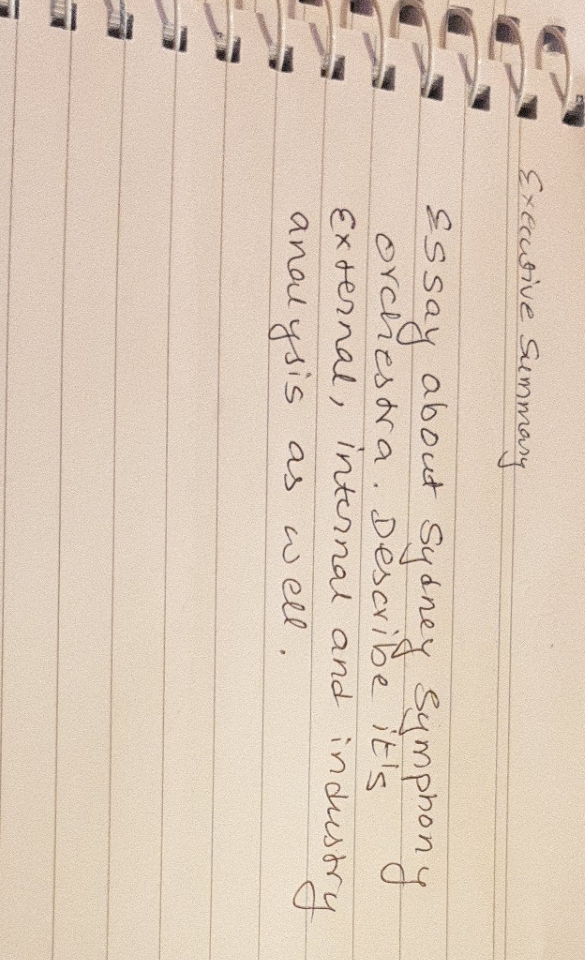 Executive Summary
Essay about Sydney Symphony
orchestra. Describe it's
External, internal and industry
analysis as well.